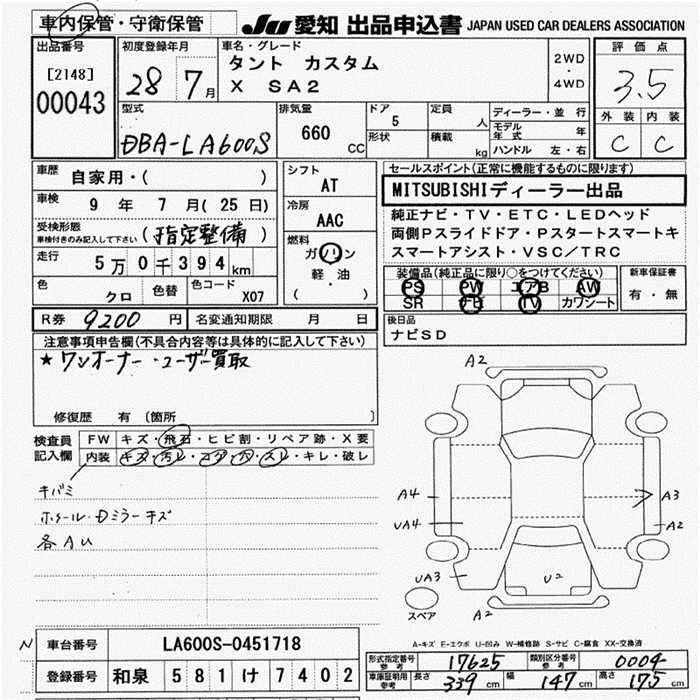 車内保管・守衛保管
JU 愛知 出品申込書 JAPAN USED CAR DEALERS ASSOCIATION
出品番号
[2148]
00043
初度登録年月
28 7 月
車名・グレード
タント カスタム
X SA2
2WD
・
4WD
評価点
3.5
外装 内装
C C
型式
DBA-LA600S
排気量
660 CC
ドア
5
形状
定員
人
積載
kg
ディーラー・並行
モデル年式 年
ハンドル 左・右
車歴
自家用・( )
車検 9 年 7 月(25日)
受検形態
車検付きのみ記入して下さい (指定整備)
走行 5万0千394km
色 クロ 色替 色コード X07
シフト
AT
冷房
AAC
燃料
ガソリン
軽・油
( )
セールスポイント(正常に機能するものに限ります)
MITSUBISHIディーラー出品
純正ナビ・TV・ETC・LEDヘッド
両側Pスライドドア・Pスタートスマートキ
スマートアシスト・VSC/TRC
装備品(純正品に限り○をつけてください)
PS PW エアB AW
SR ナビ TV カワシート
新車保証書
有・無
R券 9200 円 名変通知期限 月 日
後日品
ナビSD
注意事項申告欄(不具合内容等は具体的に記入して下さい)
★ワンオーナー・ユーザー買取
修復歴 有 〔箇所 〕
検査員記入欄
FW キズ・飛石・ヒビ割・リペア跡・X要
内装 キズ・汚レ・コゲ・穴・スレ・キレ・破レ
キバミ
ホイール・Dミラーキズ
各AU
A2
A4
UA4
UA3
A3
A2
U2
A2
スペア
A-キズ E-エクボ U-凹み W-補修跡 S-サビ C-腐食 XX-交換済
N
車台番号 LA600S-0451718
登録番号 和泉 581 け 7402
形式指定番号参考 17625 類別区分番号参考 0004
車庫証明用参考 長さ 339cm 幅 147cm 高さ 175cm